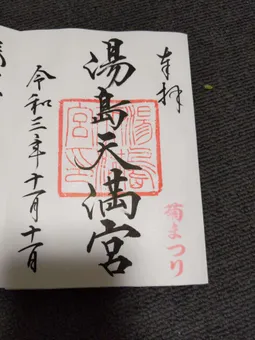 奉拝
湯島天満宮
菊まつり
令和三年十一月十一日